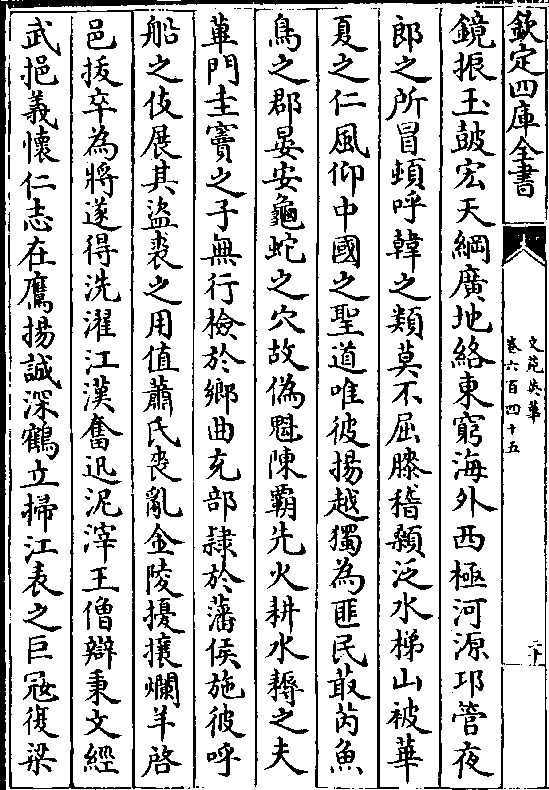 欽定四庫全書
文苑英華
卷六百四十五
二十
鏡振玉鼓宏天綱廣地絡東窮海外西極河源邛管夜
郎之所冒頓呼韓之類莫不屈膝稽顙泛水梯山被華
夏之仁風仰中國之聖道唯彼揚越獨為匪民菆芮魚
鳥之郡晏安龜蛇之穴故偽魁陳霸先火耕水耨之夫
蓽門圭竇之子無行檢於鄉曲充部隸於藩侯施彼呼
船之伎展其盜裘之用值蕭氏喪亂金陵擾攘爛羊啓
邑拔卒為將遂得洗濯江漢奮迅泥滓王僧辯秉文經
武挹義懷仁志在鷹揚誠深鶴立掃江表之巨寇復梁